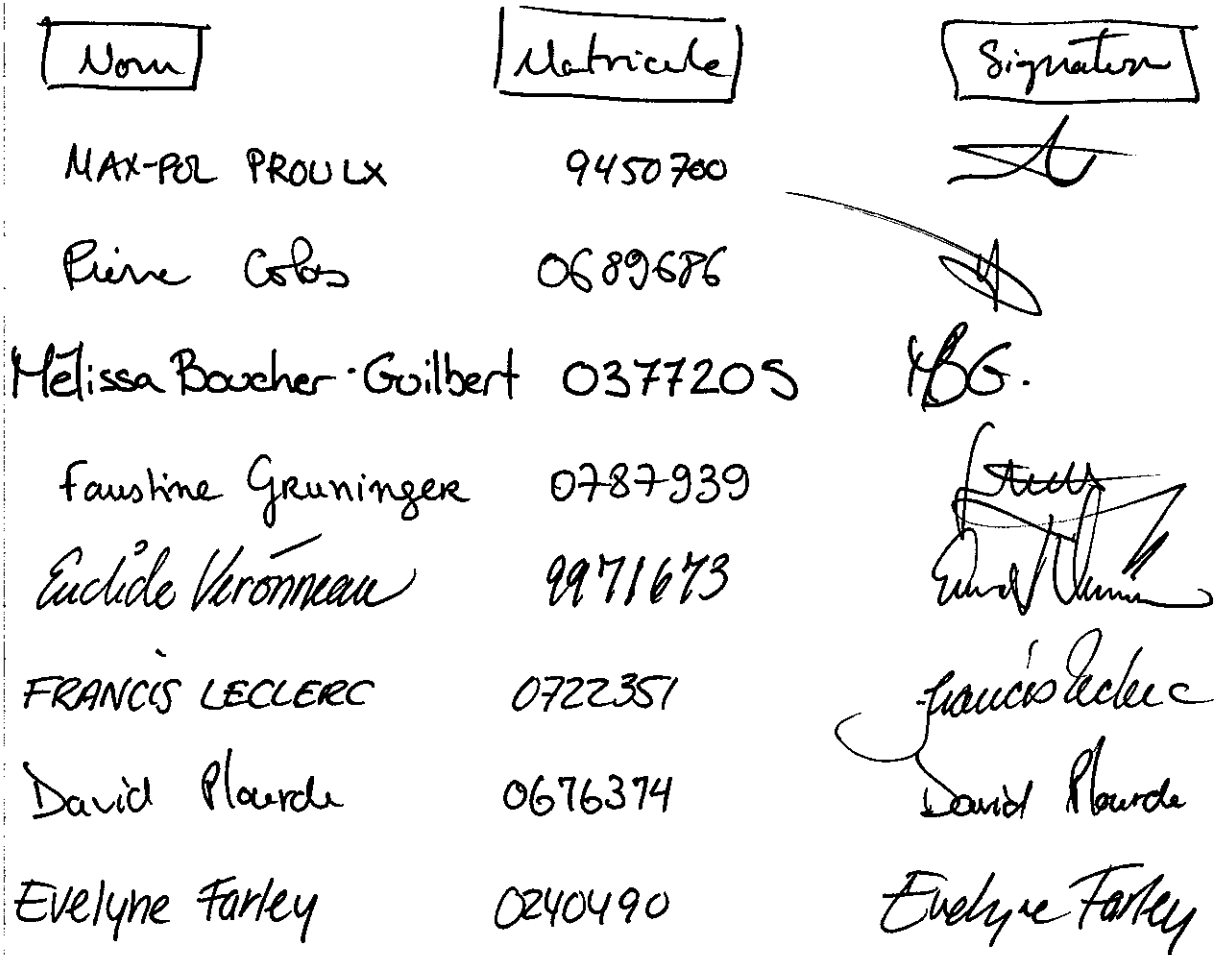 Nom Matricule Signature
MAX-POL PROULX 9450700
Pierre Colas 0689686
Mélissa Boucher-Guilbert 0377205 MBG.
Faustine Gruninger 0787939
Euclide Véronneau 9971673
FRANCIS LECLERC 0722351 Francis Leclerc
David Plourde 0676374 David Plourde
Evelyne Farley 0240490 Evelyne Farley